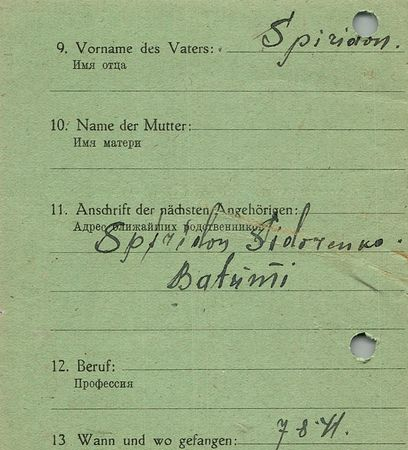 9. Vorname des Vaters: Spiridon.
Имя отца
10. Name der Mutter:
Имя матери
11. Anschrift der nächsten Angehörigen:
Адрес ближайших родственников
Spiridon Sidorenko.
Batumi
12. Beruf:
Профессия
7 8 41.
13 Wann und wo gefangen: